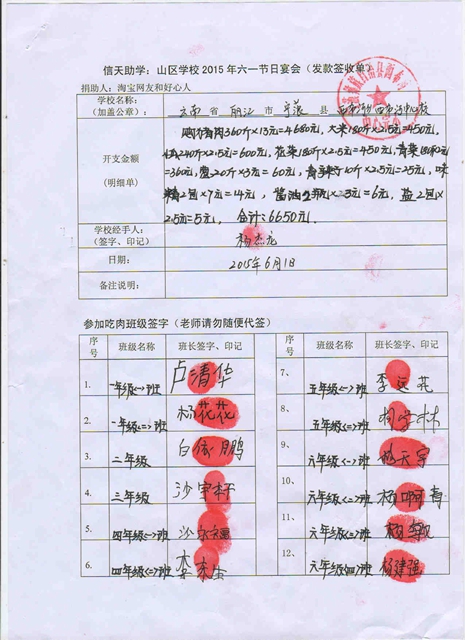 信天助学：山区学校2015年六一节日宴会（发款签收单）
捐助人：淘宝网友和好心人
学校名称：
（加盖公章）：
云南省 丽江市 宁蒗县
开支金额
（明细单）
360斤×13元=4680元，大米180斤×2.5元=450元，
240斤×2.5元=600元，花菜180斤×2.5元=450元，青菜180斤×2元
=360元，盐20斤×3元=60元，10斤×2.5元=25元，味
精2包×7元=14元，酱油2瓶×3元=6元，盐2包×
2.5元=5元，合计：6650元。
学校经手人：
（签字、印记）
杨杰龙
日期：
2015年6月1日
备注说明：
参加吃肉班级签字（老师请勿随便代签）
序号 班级名称 班长签字、印记 序号 班级名称 班长签字、印记
1. 一年级<一>班 卢清华
7、 五年级<一>班 李运花
2. 一年级<二>班 杨花花
8、 五年级<二>班
3. 二年级
9、 六年级<一>班
4. 三年级 沙宇轩
10、 六年级<二>班
5. 四年级<一>班
11、 六年级<三>班
6. 四年级<二>班
12、 六年级<四>班 杨建强